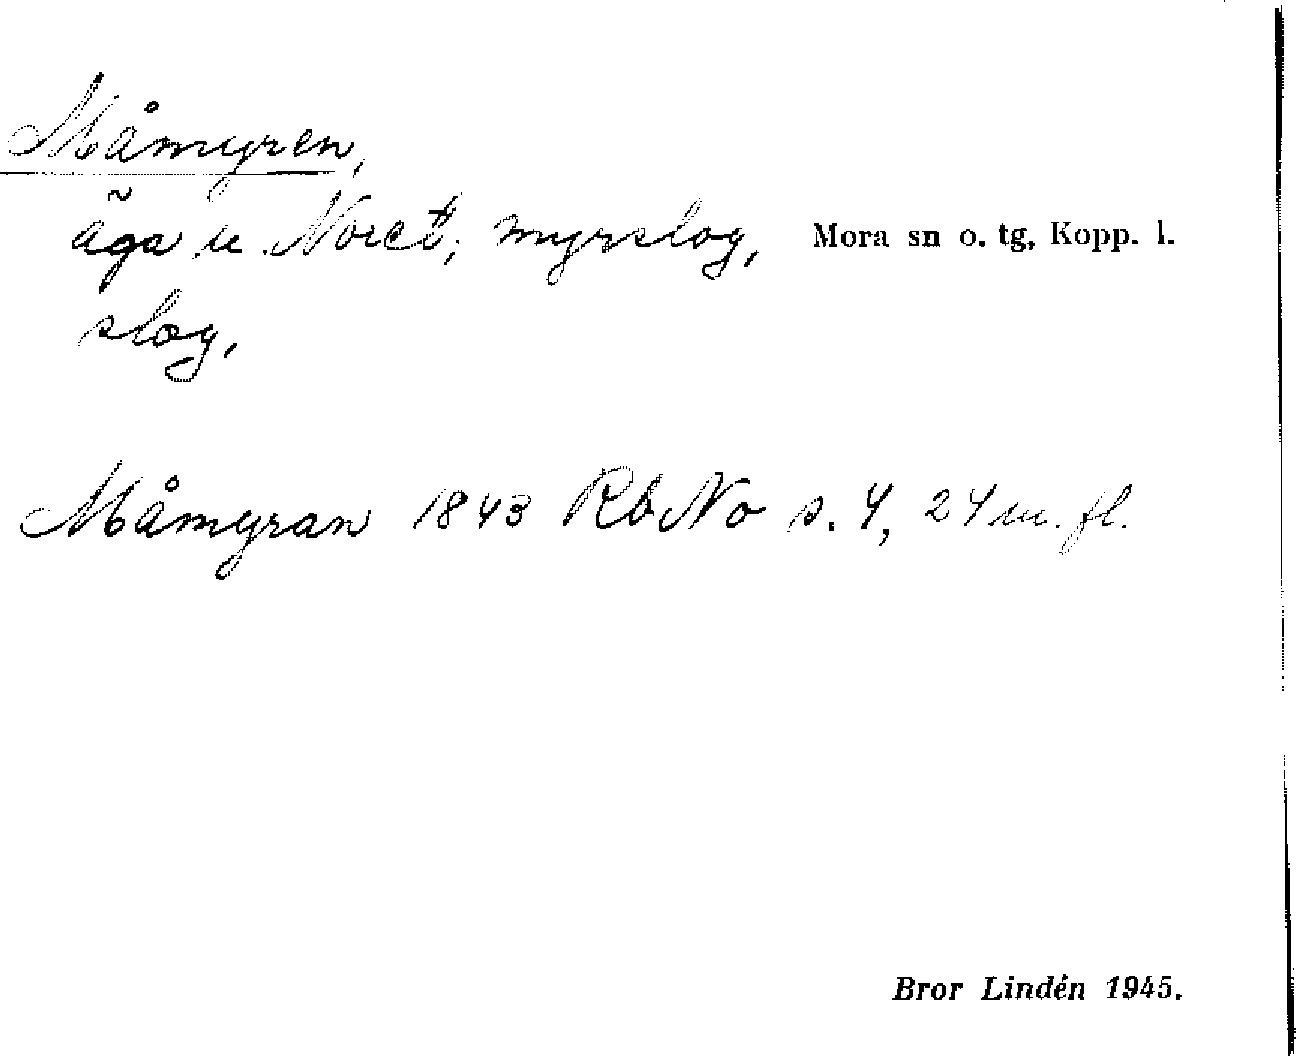 Måmyren,
äga u. Noret; myrslog, Mora sn o. tg, Kopp. l.
slog,
Måmyran 1843 RbNo s. 4, 24 m. fl.
Bror Lindén 1945.